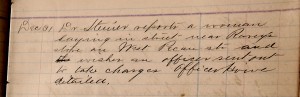 Dec 31 Dr Steiner reports a woman
laying in street near Roney's
on West Pecan st and
wishes an officer sent out
to take charge Officer
detailed.